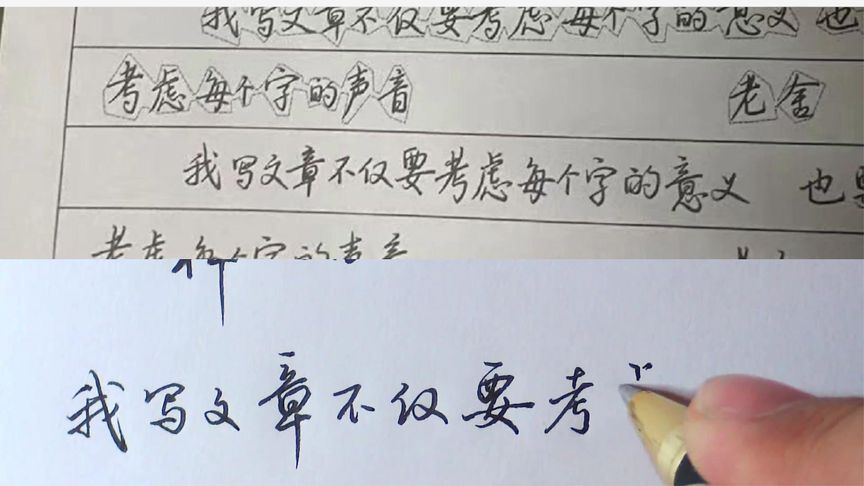 我写文章不仅要考虑每个字的意义 也
考虑每个字的声音 老舍
我写文章不仅要考虑每个字的意义 也要
考虑每个字的声音
我写文章不仅要考